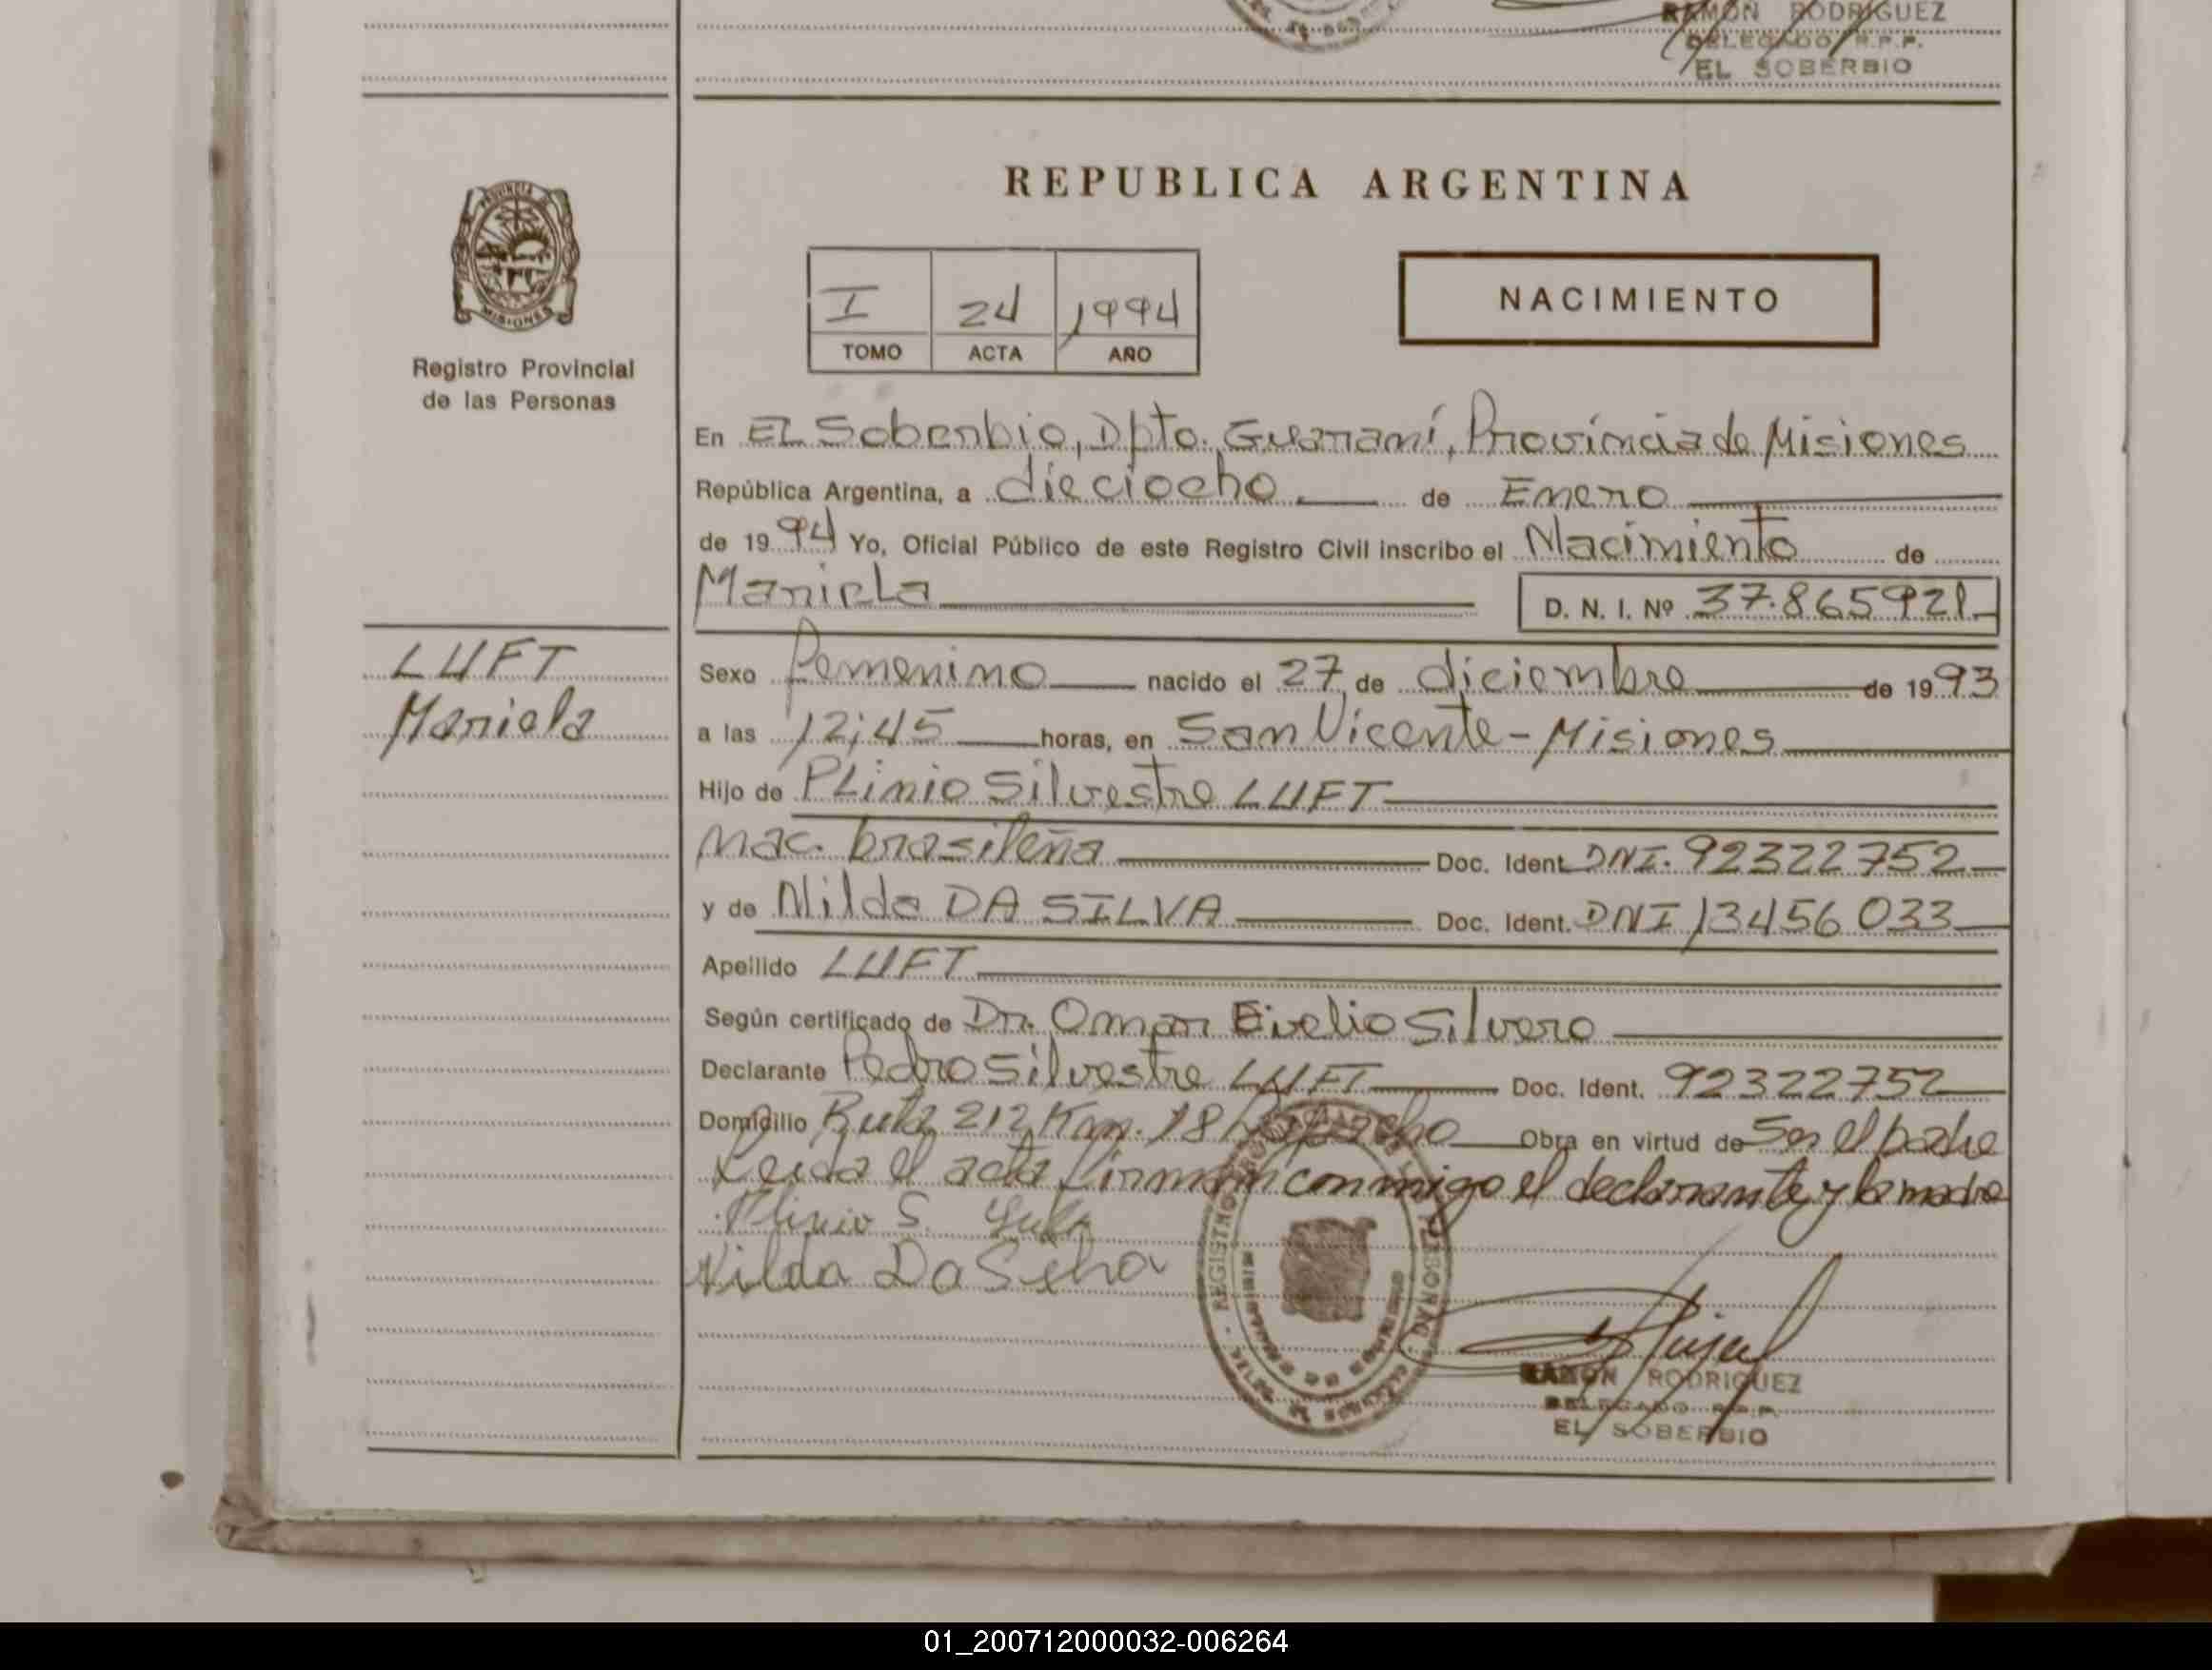 RAMON RODRIGUEZ
DELEGADO R.P.P.
EL SOBERBIO
PROVINCIA DE
MISIONES
Registro Provincial
de las Personas
LUFT
Mariela
REPUBLICA ARGENTINA
I 24 1994
TOMO ACTA AÑO
NACIMIENTO
En EL Soberbio, Dpto. Guaraní, Provincia de Misiones
República Argentina, a dieciocho de Enero
de 1994 Yo, Oficial Público de este Registro Civil inscribo el Nacimiento de
Mariela D. N. I. Nº 37.865921
Sexo Femenino nacido el 27 de diciembre de 1993
a las 12:45 horas, en San Vicente - Misiones
Hijo de PLinio Silvestre LUFT
nac. brasileña Doc. Ident. DNI. 92322752
y de Nilda DA SILVA Doc. Ident. DNI 13456033
Apellido LUFT
Según certificado de Dr. Omar Evelio Silvero
Declarante Pedro Silvestre LUFT Doc. Ident. 92322752
Domicilio Ruta 212 Km. 18 Obra en virtud de Ser el padre
Leida el acta firman conmigo el declarante y la madre
Plinio S. Luft
Nilda Da Silva
RAMON RODRIGUEZ
DELEGADO R.P.P.
EL SOBERBIO
01_200712000032-006264